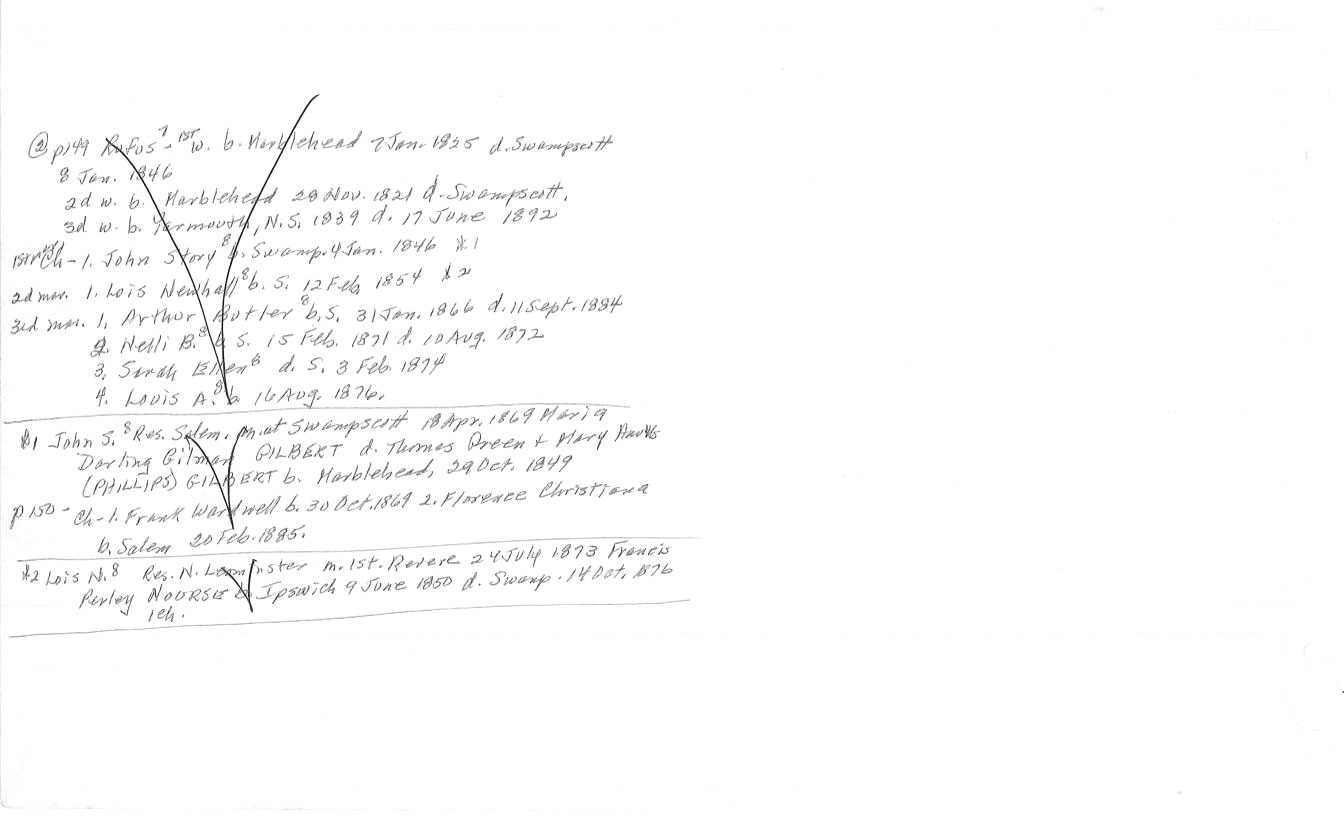 ② p149 Rufus⁷ - 1ST w. b. Marblehead 7 Jan. 1825 d. Swampscott
8 Jan. 1846
2d w. b. Marblehead 28 Nov. 1821 d. Swampscott,
3d w. b. Yarmouth, N.S. 1839 d. 17 June 1892
1st mar Ch - 1. John Story⁸ b. Swamp. 4 Jan. 1846 *1
2d mar. 1. Lois Newhall⁸ b. S. 12 Feb, 1854 *2
3rd mar. 1, Arthur Butler⁸ b. S. 31 Jan. 1866 d. 11 Sept. 1884
2. Nelli B.⁸ b S. 15 Feb. 1871 d. 10 Aug. 1872
3, Sarah Ellen⁸ d. S, 3 Feb. 1874
4. Louis A.⁸ b. 16 Aug. 1876.
*1 John S.⁸ Res. Salem. m. at Swampscott 18 Apr. 1869 Maria
Darling Gilman GILBERT d. Thomas Green + Mary
(PHILLIPS) GILBERT b. Marblehead, 29 Oct. 1849
p 150 - Ch - 1. Frank Wardwell b. 30 Oct. 1869 2. Florence Christiana
b. Salem 20 Feb. 1885.
*2 Lois N.⁸ Res. N. Leominster m. 1st. Revere 24 July 1873 Francis
Perley NOURSE b. Ipswich 9 June 1850 d. Swamp. 14 Oct. 1876
1 ch.